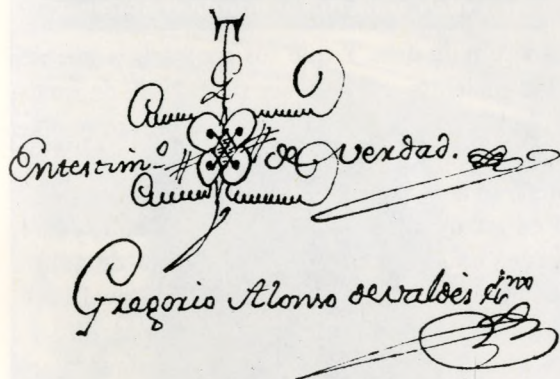 Entestim.º de verdad.
Gregorio Alonso de valdès